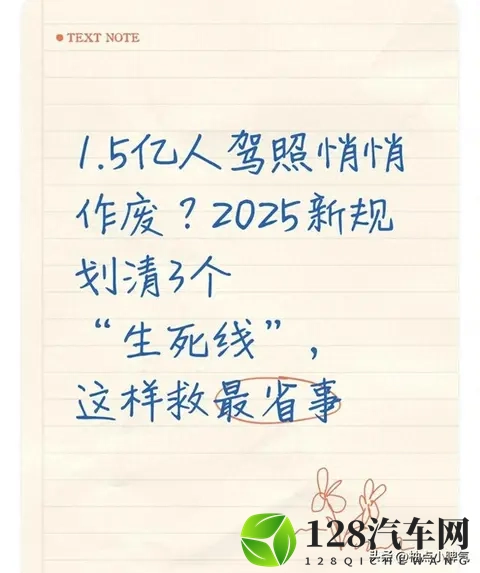 TEXT NOTE
1.5亿人驾照悄悄
作废？2025新规
划清3个
“生死线”，
这样救最省事
128汽车网
头条@地点小脾气
128QICHEWANG